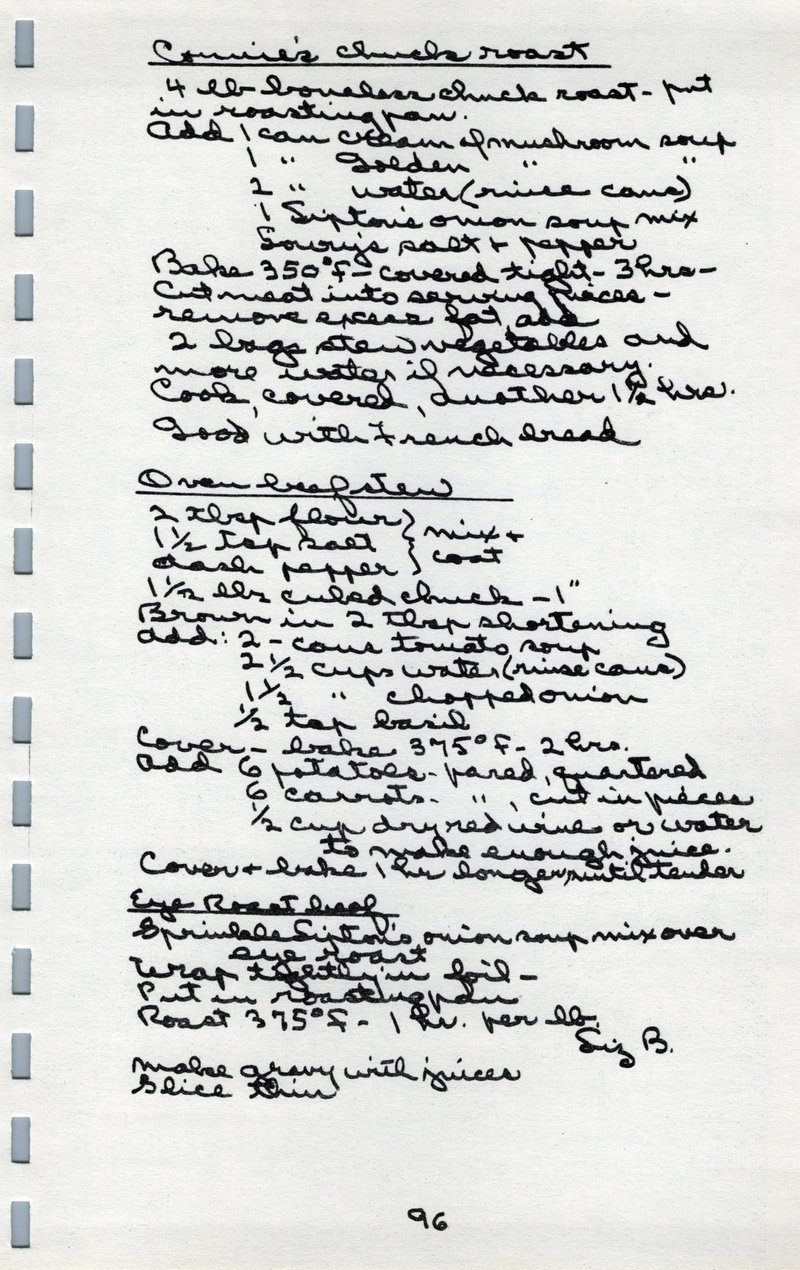 Connie's chuck roast
4 lb boneless chuck roast - put
in roasting pan.
Add 1 can cream of mushroom soup
1 " Golden " "
2 " water (rinse cans)
1 Lipton's onion soup mix
Lowry's salt + pepper
Bake 350°F - covered tight - 3 hrs -
Cut meat into serving pieces -
remove excess fat, add
2 bags stew vegetables and
more water if necessary.
Cook, covered, another 1 1/2 hrs.
Good with French bread
Oven beef stew
2 tbsp flour } mix +
1 1/2 tsp salt } coat
dash pepper }
1 1/2 lbs cubed chuck - 1"
Brown in 2 tbsp shortening
Add: 2 - cans tomato soup
2 1/2 cups water (rinse cans)
1 1/2 " chopped onion
1/2 tsp basil
Cover - bake 375°F - 2 hrs.
Add 6 potatoes - pared, quartered
6 carrots - ", cut in pieces
1/2 cup dry red wine or water
to make enough juice.
Cover + bake 1 hr longer, until tender
Eye Roast beef
Sprinkle Lipton's onion soup mix over
eye roast
Wrap tightly in foil -
Put in roasting pan
Roast 375°F - 1 hr. per lb.
Liz B.
make gravy with juices
Slice thin
96